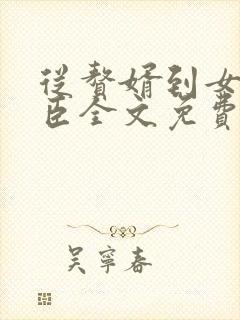 从赘婿到女
臣全文免费
吴宁春